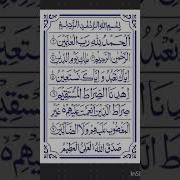 بِسْمِ اللّٰهِ الرَّحْمٰنِ الرَّحِيْمِ
اَلْحَمْدُ لِلّٰهِ رَبِّ الْعٰلَمِيْنَ
الرَّحْمٰنِ الرَّحِيْمِ مٰلِكِ يَوْمِ الدِّيْنِ
اِيَّاكَ نَعْبُدُ وَاِيَّاكَ نَسْتَعِيْنُ
اِهْدِنَا الصِّرَاطَ الْمُسْتَقِيْمَ
صِرَاطَ الَّذِيْنَ اَنْعَمْتَ عَلَيْهِمْ غَيْرِ
الْمَغْضُوْبِ عَلَيْهِمْ وَلَا الضَّالِّيْنَ
صَدَقَ اللّٰهُ الْعَلِيُّ الْعَظِيْمُ